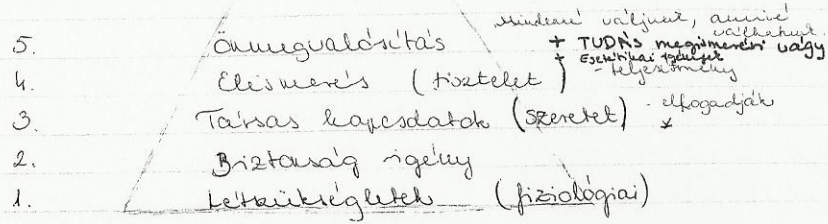 mindenné váljunk, amivé
válhatunk
5. Önmegvalósítás + TUDÁS megismerési vágy
+ Esztétikai igények
4. Elismerés (tisztelet) - teljesítmény
3. Társas kapcsolatok (szeretet) - elfogadják
2. Biztonság igény
1. Létszükségletek (fiziológiai)